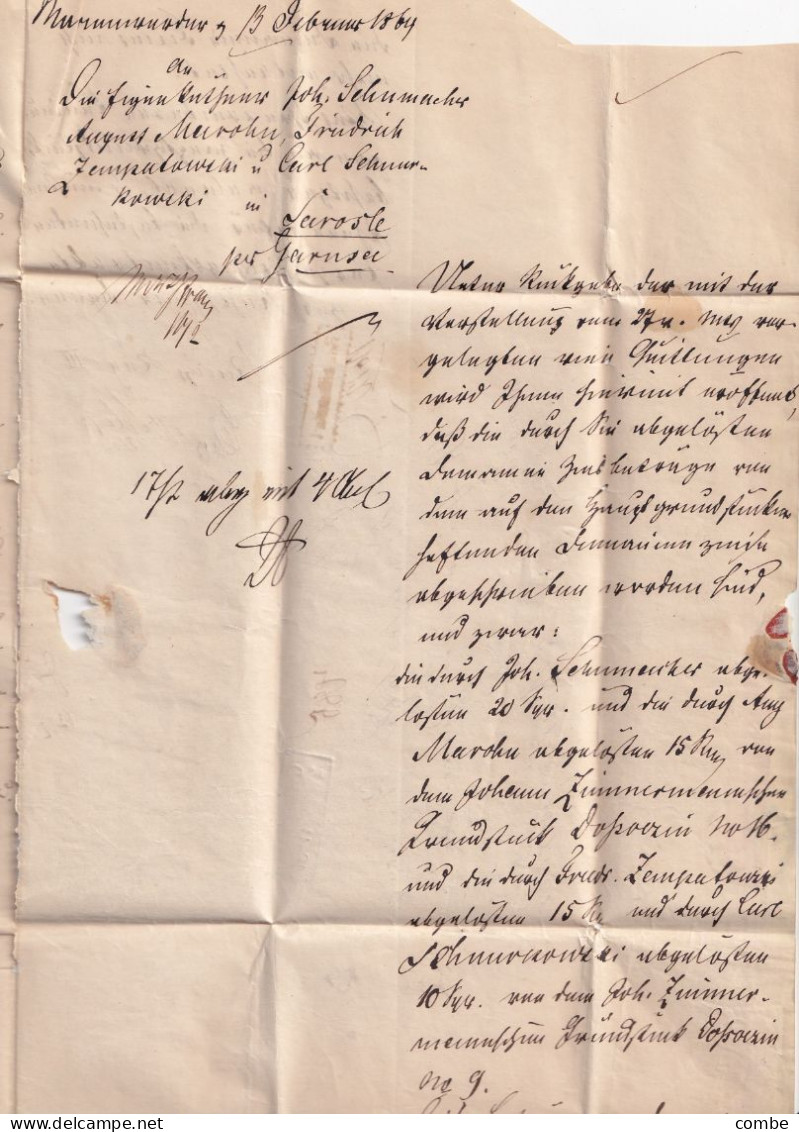 Marienwerder, 13 Februar 1864
An
Die Eigenkäthner Joh. Schumacher
August Marohn, Friedrich
Zempatowski u Carl Schmur-
kowski in
Sarosle
per Garnsee
Unter Rückgabe der mit der
Vorstellung vom 27 v. Mts vor-
gelegten vier Quittungen
wird Ihnen hiermit eröffnet,
daß die durch Sie abgelösten
Domainen Zinsbeträge von
dem auf den Hauptgrundstücken
haftenden Domainenzinse
abgeschrieben worden sind,
und zwar:
die durch Joh. Schumacher abge-
lösten 20 Sgr. und die durch Aug
Marohn abgelösten 15 von
dem Johann Zimmermannschen
Grundstück No 16.
und die durch Friedr. Zempatowski
abgelösten 15 und durch Carl
Schmurkowski abgelösten
10 Sgr. von dem Joh. Zimmer-
mannschen Grundstück
no 9.
combe